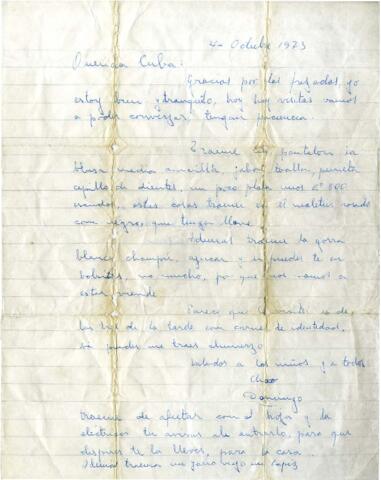 4- Octubre 1973
Querida Cuba:
Gracias por las frazadas, yo
estoy bien y tranquilo, hoy hay visitas vamos
a poder conversar, tengan paciencia.
Traeme pantalon la
blusa media amarilla, jabon, toalla, peineta
cepillo de dientes, un poco plata unos Eº 500
estas cosas traeme en el maletin
negro, que tenga llave.
traeme la gorra
blanca, champu, azucar y si puedes te en
bolsitas, no mucho, por que nos vamos a
estar
Parece que la visita es de
las de la tarde con carnet de identidad,
si puedes me traes almuerzo
Saludos a los niños y a todos
Chao
Domingo
traeme de afeitar con el hoja y la
electrica tu avisas al entrarlo, para que
despues te la lleves, para la casa.
Ademas traeme un jarro viejo un lapiz